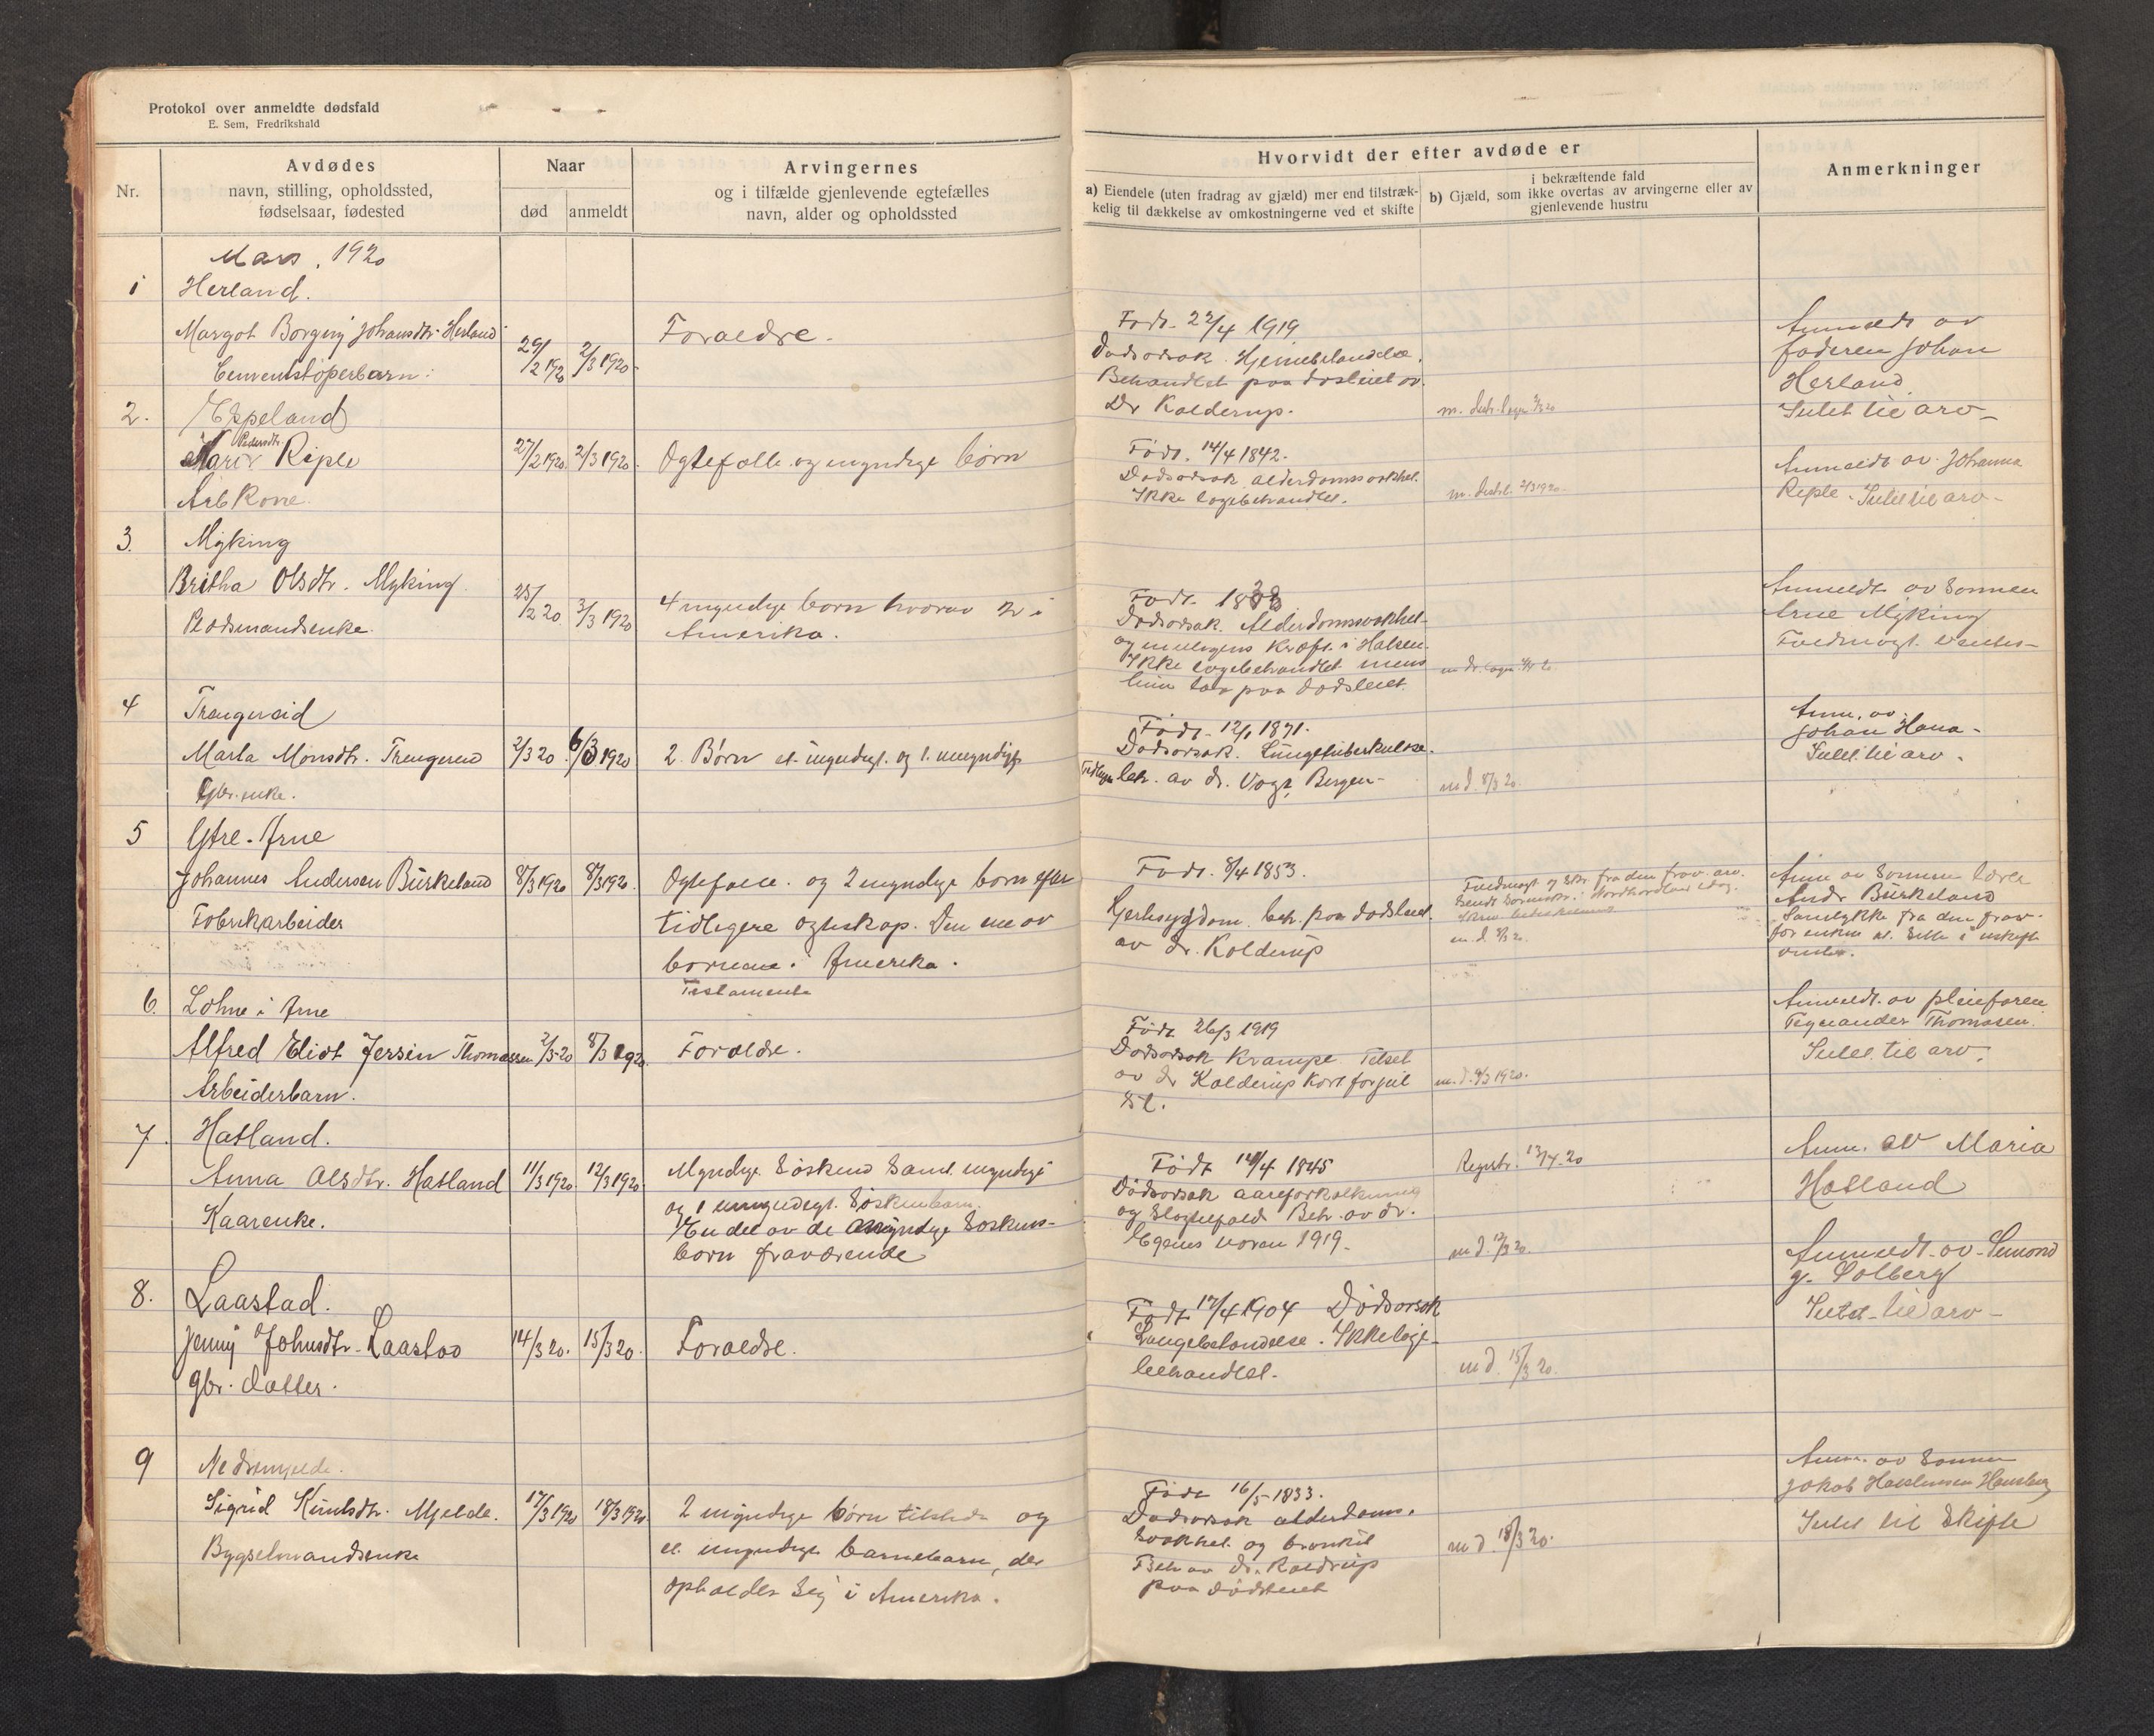 Protokol over anmeldte dødsfald
E. Sem, Fredrikshald
Nr.
Avdødes
navn, stilling, opholdssted,
fødselsaar, fødested
Naar
død
anmeldt
Arvingernes
og i tilfælde gjenlevende egtefælles
navn, alder og opholdssted
Hvorvidt der efter avdøde er
a) Eiendele (uten fradrag av gjæld) mer end tilstræk-
kelig til dækkelse av omkostningerne ved et skifte
i bekræftende fald
b) Gjæld, som ikke overtas av arvingerne eller av
gjenlevende hustru
Anmerkninger
Mars, 1920
1
Herland.
Margot Borgny Johansdtr. Herland
Cementstøperbarn.
29/2 1920
2/3 1920
Foraeldre.
Født 22/4 1919
Dødsorsak Hjernebetændelse.
Behandlet paa dødsleiet av
Dr Kolderup.
2/3 20
Anmeldt av
faderen Johan
Herland
Intet til arv
2.
Espeland
Pedersdtr.
Mari Riple
Arb Kone.
27/2 1920.
2/3 1920.
Ogtefælle og myndige børn
Født. 14/4 1842.
Dødsorsak alderdomssvakhet.
Ikke lægebehandlet.
2/3 1920
Anmeldt av Johanna
Riple. Intet til arv
3.
Myking
Britha Olsdtr. Myking
Pladsmandsenke.
25/2 20
3/3 1920
4 myndige børn hvorav 2 i
Amerika.
Født. 1833
Dødsorsak. Alderdomssvakhet
og muligens Kræft i Halsen.
Ikke lægebehandlet mens
hun laa paa dødsleiet.
Anmeldt av Sønnen
Arne Myking
Fuldmagt ventes
4
Trengereid
Marta Monsdtr. Trengereid
Gbr. enke.
2/3 20
6/3 1920
2 Børn et myndigt og 1 umyndigt
Født 12/1 1871.
Dødsorsak. Lungetuberkulose.
Tidligere beh. av dr. Vogt, Bergen
m d. 8/3 20.
Anm. av
Johan Hana
Intet til arv.
5
Ytre-Arne
Johannes Andersen Birkeland
Fabrikarbeider
8/3 1920
8/3 1920.
Ogtefælle og 2 myndige børn efter
tidligere egteskap. Den ene av
børnene i Amerika.
Testamente
Født. 8/4 1853.
Hjertesygdom beh. paa dødsleiet
av dr. Kolderup
m. d. 8/3 20.
Anm av Sønnen lærer
Andr. Birkeland
Samtykke fra den frav.
for enken at sitte i uskifte
6.
Løhne i Arne
Alfred Eliot Jersin Thomassen
Arbeiderbarn.
2/3-20
8/3 1920
Forældre.
Født 26/3 1919
Dødsorsak Krampe Tilset
av dr Kolderup
m. d. 9/3 1920.
Anmeldt av pleiefaren
Thomassen.
Intet til arv.
7.
Hatland.
Anna Olsdtr. Hatland
Kaarenke.
11/3 1920.
12/3 1920.
Myndige Søskend samt myndige
og 1 umyndigt Søskenbarn.
En del av de myndige Søsken-
børn fraværende
Født 14/4 1845
Dødsorsak aareforkalkning
og Slagtilfæld Beh. av dr.
Egenes vaaren 1919.
Registr. 13/4.20
m d. 12/3 20.
Anm. av Maria
Hatland
8.
Laastad.
Jenny Johnsdtr. Laastad
gbr. datter.
14/3 20.
15/3 20.
Foraeldre.
Født 17/4 1904 Dødsorsak
Lungebetændelse. Ikke læge-
behandlet.
m d. 15/3 20.
Anmeldt av Simond
g. Solberg
Intet til arv
9
Nedremjelde.
Sigrid Knutsdtr. Mjelde.
Bygselmandsenke
17/3 1920
18/3 1920
2 myndige børn tilstede og
et myndige barnebarn, der
opholder sig i Amerika.
Født 16/5 1833.
Dødsorsak alderdoms-
svakhet og bronkit
Beh av dr. Koldrup
paa dødsleiet
m d. 18/3 20.
Anm. av Sønnen
Jakob
Intet til Skifte